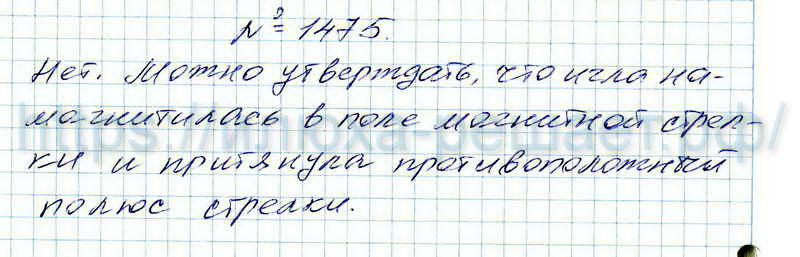 № 1475.
Нет. Можно утверждать, что игла на-
магнитилась в поле магнитной стрел-
ки и притянула противоположный
полюс стрелки.